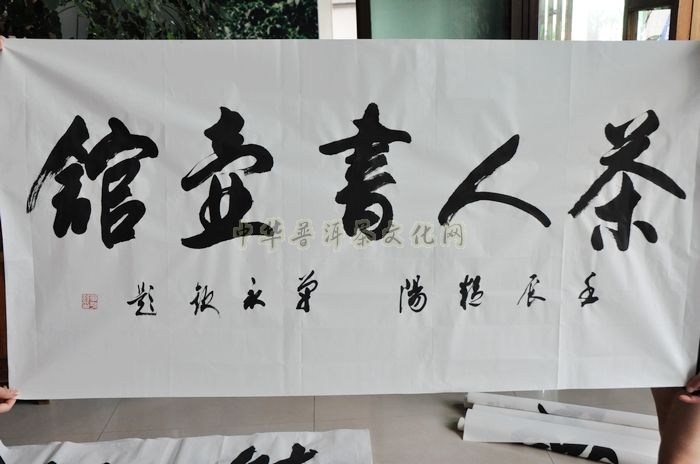 茶人書壺館
壬辰 陽 單永欽題
中华普洱茶文化网